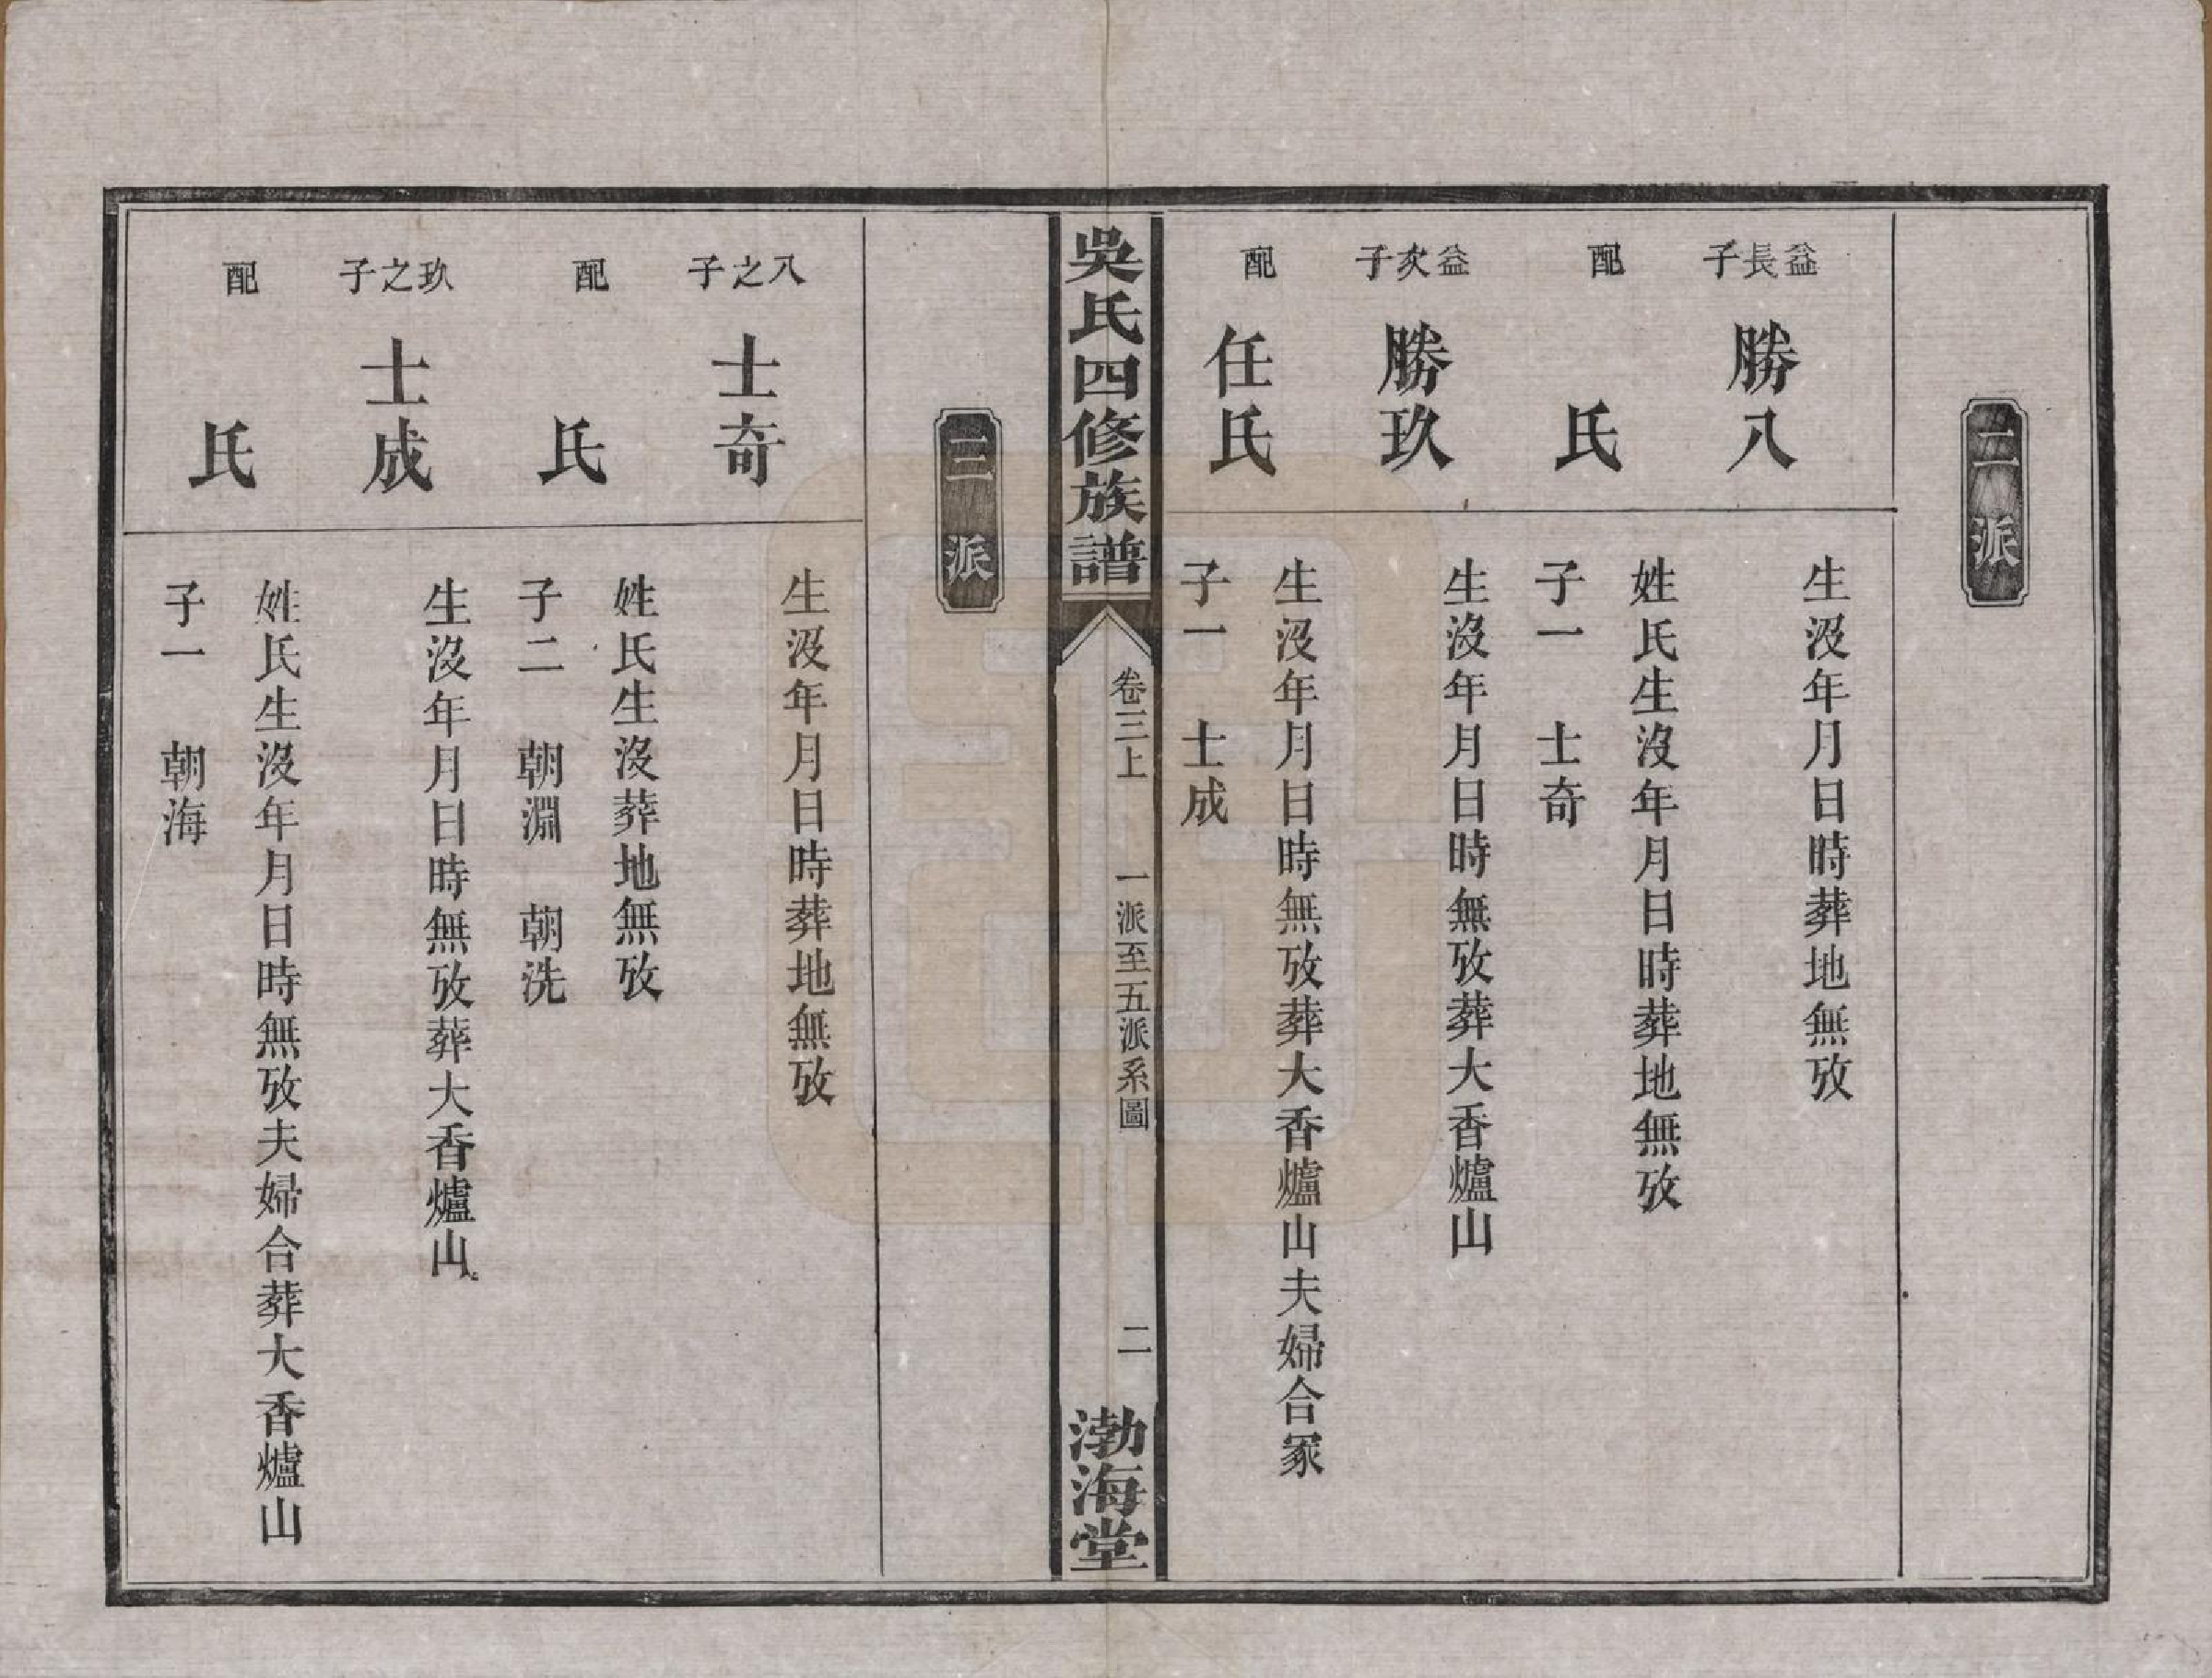 二派
益長子
勝八
生没年月日時葬地無攷
配
氏
姓氏生没年月日時葬地無攷
子一　士奇
益次子
勝玖
生没年月日時無攷葬大香爐山
配
任氏
生没年月日時無攷葬大香爐山夫婦合冢
子一　士成
吳氏四修族譜
卷三上
一派至五派系圖
二
渤海堂
三派
八之子
士奇
生没年月日時葬地無攷
配
氏
姓氏生没葬地無攷
子二　朝淵　朝洗
玖之子
士成
生没年月日時無攷葬大香爐山
配
氏
姓氏生没年月日時無攷夫婦合葬大香爐山
子一　朝海